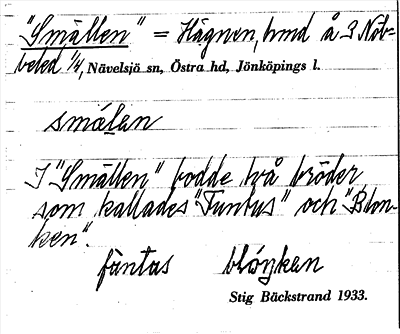 "Smällen" = Hägnen, hmd å 3 Nöb-
beled 1/4, Nävelsjö sn, Östra hd, Jönköpings l.
smälan
I "Smällen" bodde två bröder
som kallades "Funtus" och "Blon-
ken".
fùntas blóŋkan
Stig Bäckstrand 1933.